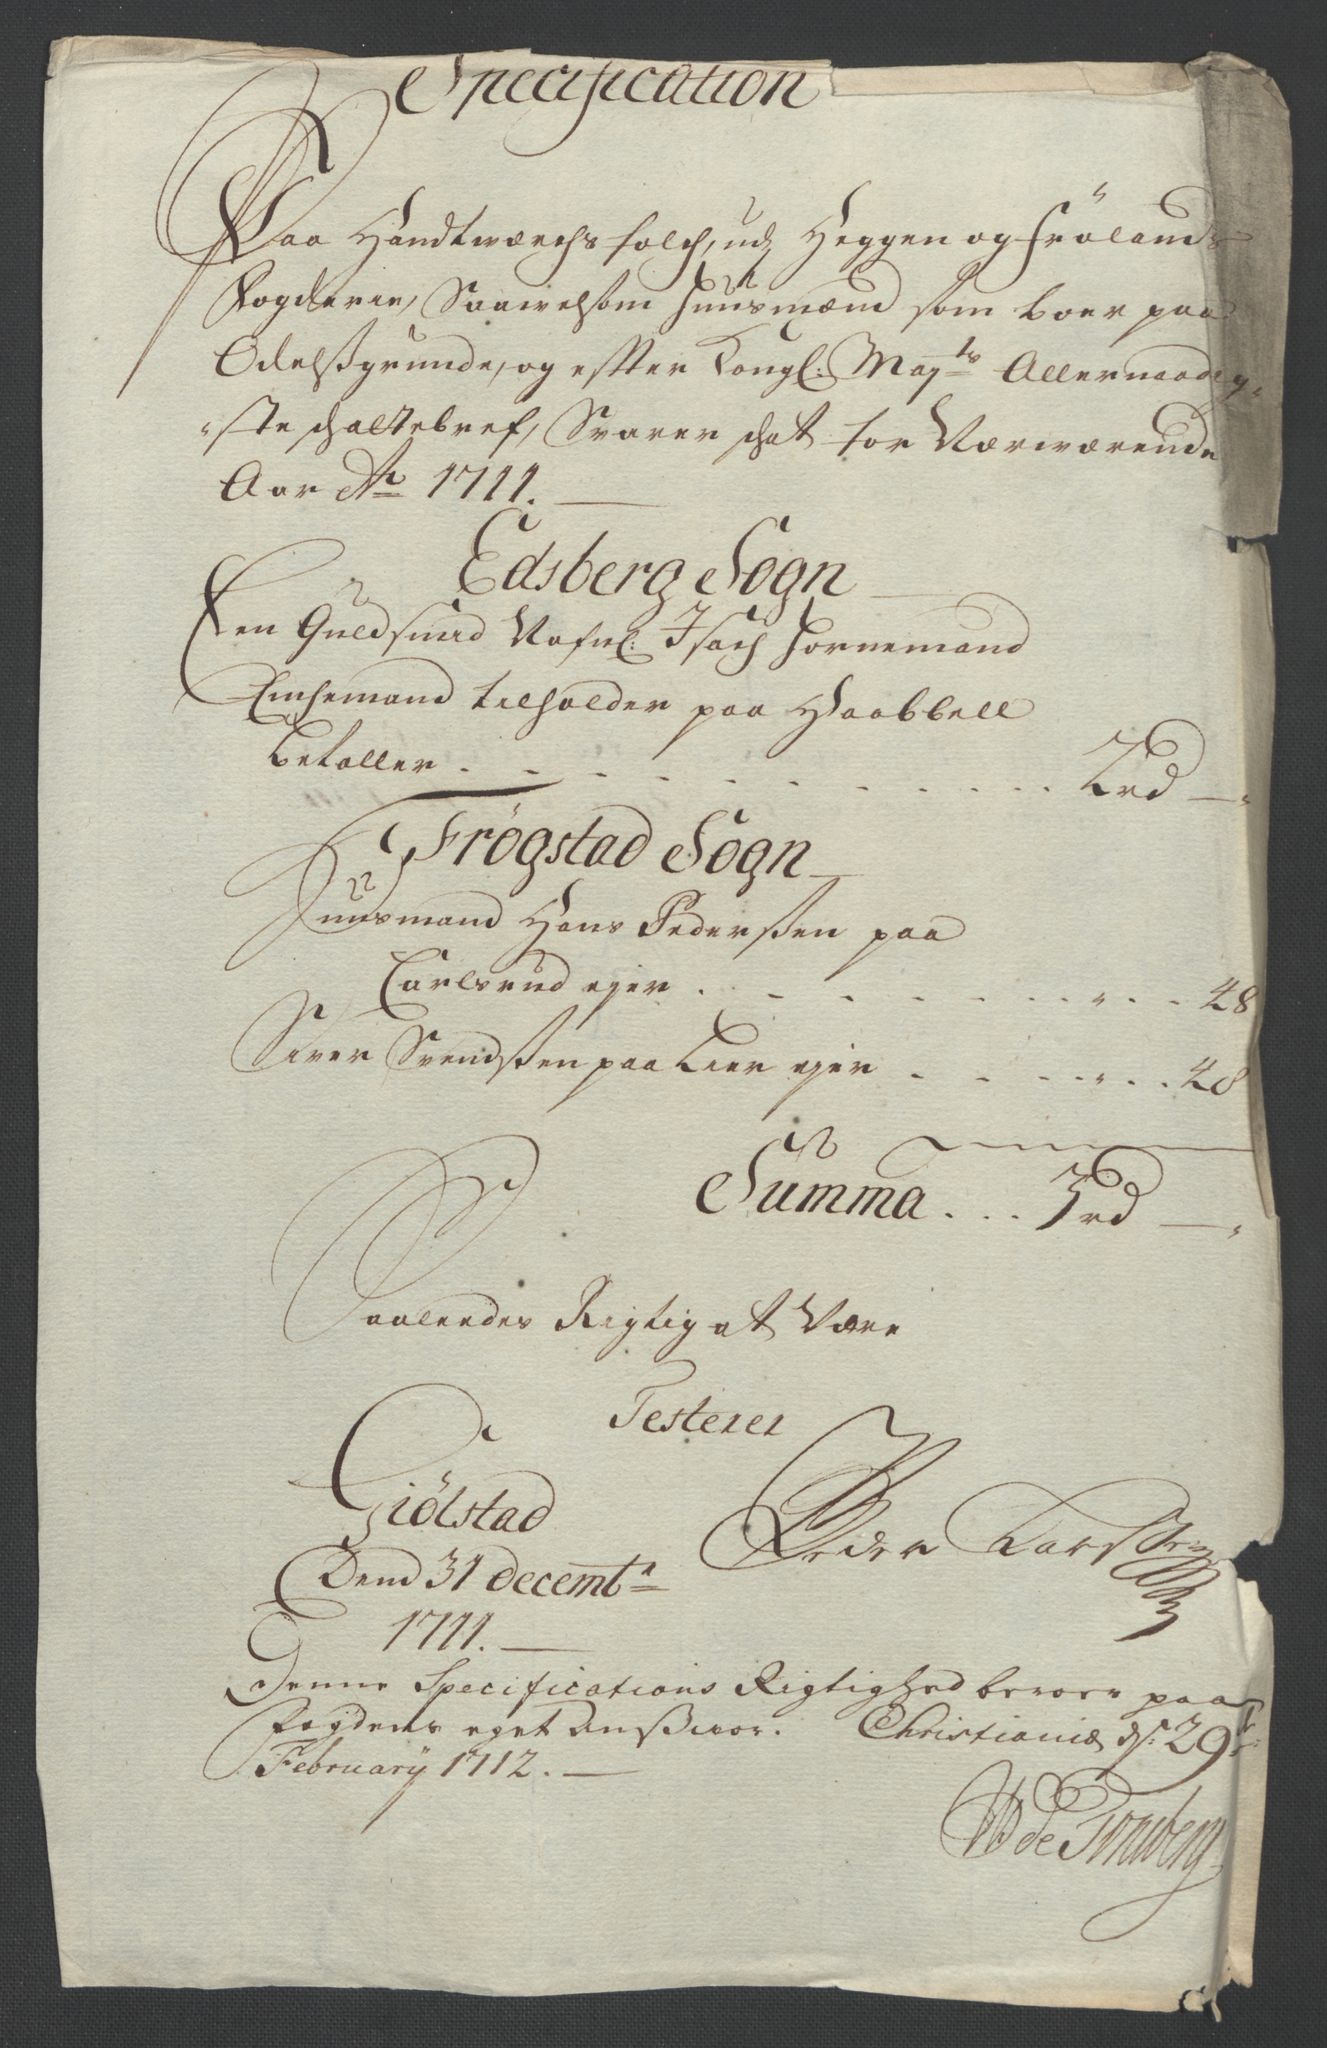 Specification
Paa Handtwerchs folch, ud Heggen og Frölands
Fogderie, Saavelsom Huusmænd som boer paa
Odelsgrunde, og effter Kongl: Mayts Allernaadig-
ste schattebref, Svarer schat for Nærværende
Aar Ao 1711.
Edsberg Sogn
Een Guldsmed Nafnl: Isach Hornemand
Enchemand tilholder paa Haabbell
betaller . . . . . . . . . . 2 rd —„
Frögstad Sogn
Huusmand Hans Pederssen paa
Carlsrud ejer . . . . . . . . „ . . 48
Siver Svendssen paa Lier ejer . . . . „ . . 48
Summa . . . 3 rd —„
Saaledes Rigtig at Være
Testerer
Giölstad
Dend 31 decembr
1711.
Peder Karssen
Denne Specifications Rigtighed beroer paa
fogdens eget ansvar. Christiania ds: 29
February 1712.